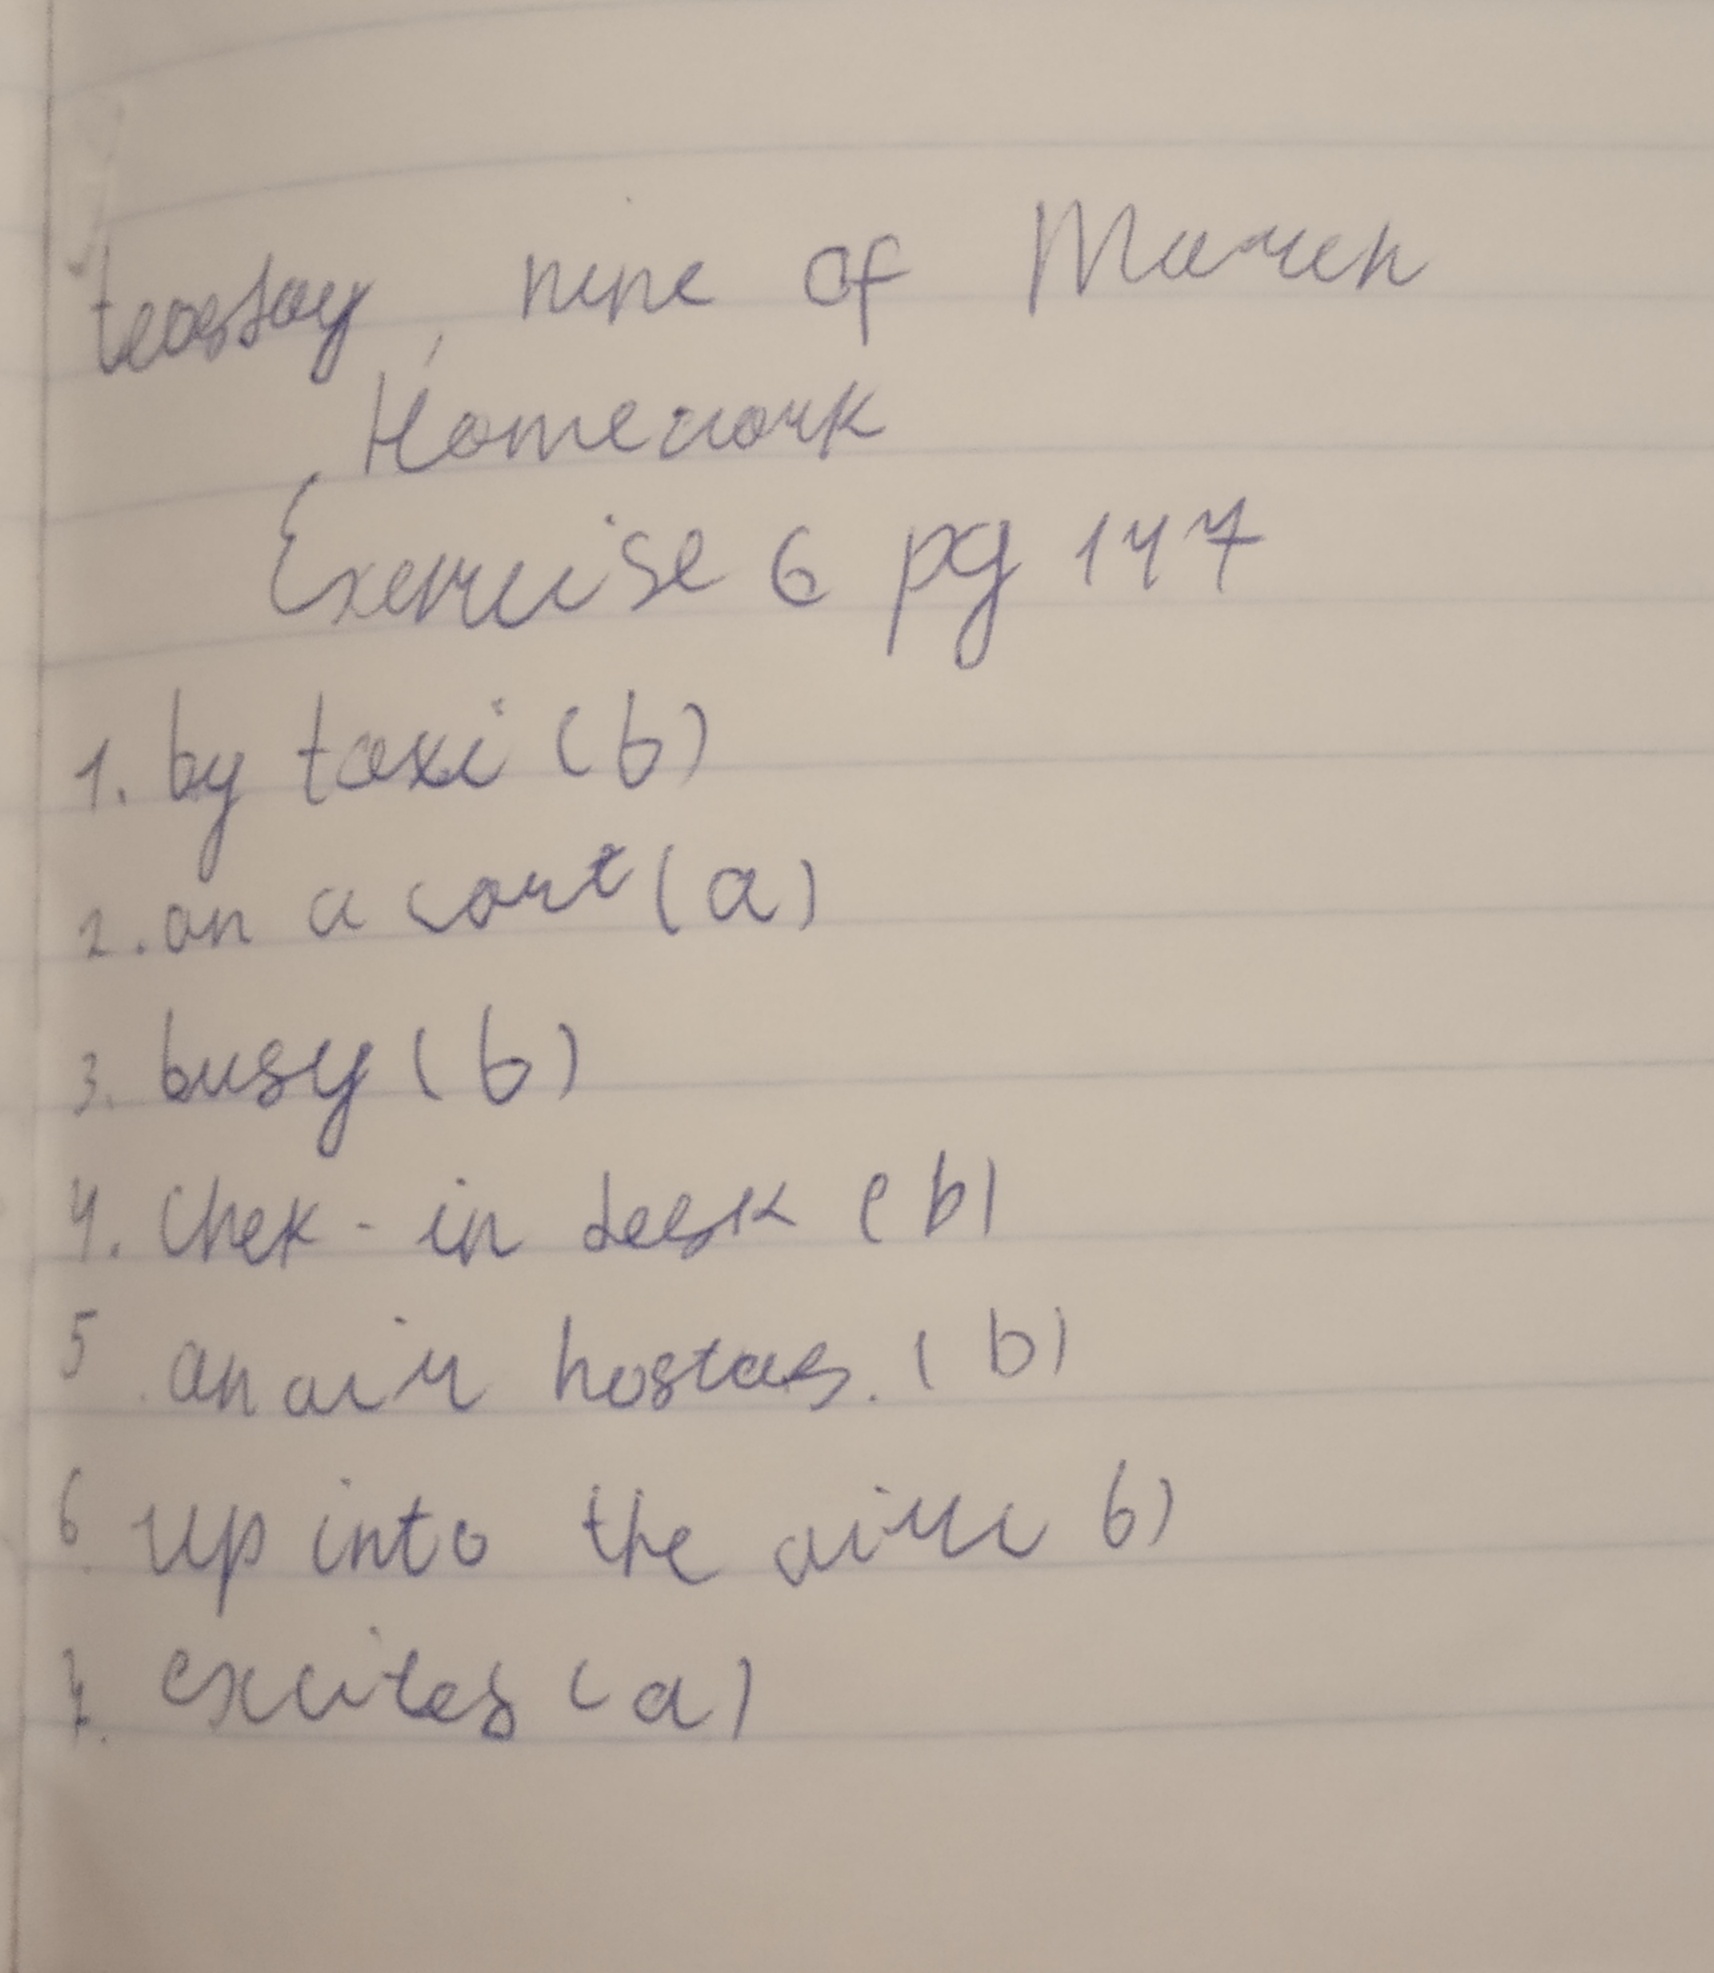 teasday, nine of March
Homework
Exercise 6 pg 147
1. by taxi (b)
2. on a cart (a)
3. busy (b)
4. Chek-in desk (b)
5. an air hostas. (b)
6. up into the air b)
7. excites (a)